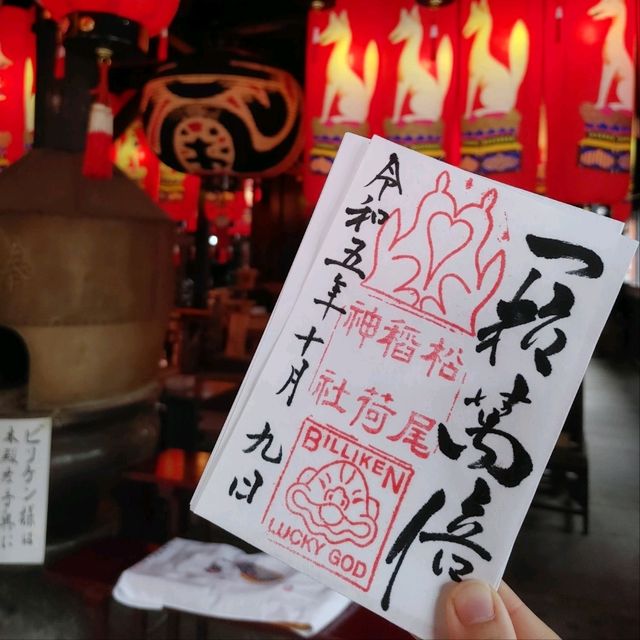 一粒萬倍
松尾
稲荷
神社
BILLIKEN
LUCKY GOD
令和五年十月九日
ビリケン様は
本殿